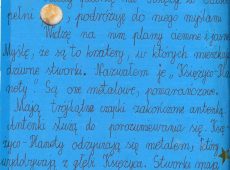 pełni podróżuję do niego myślami
Widzę na nim plamy ciemne i jasne
Myślę, że są to kratery, w których mieszkają
dziwne stworki. Nazwałem je „Księżyco-
Hanoty". Są one metalowe, pomarańczowe.
Mają trójkątne czapki zakończone antenką.
Antenka służy do porozumiewania się. Księ
życo-Hanoty odżywiają się metalem, który
wydobywają z głębi Księżyca. Stworki mają